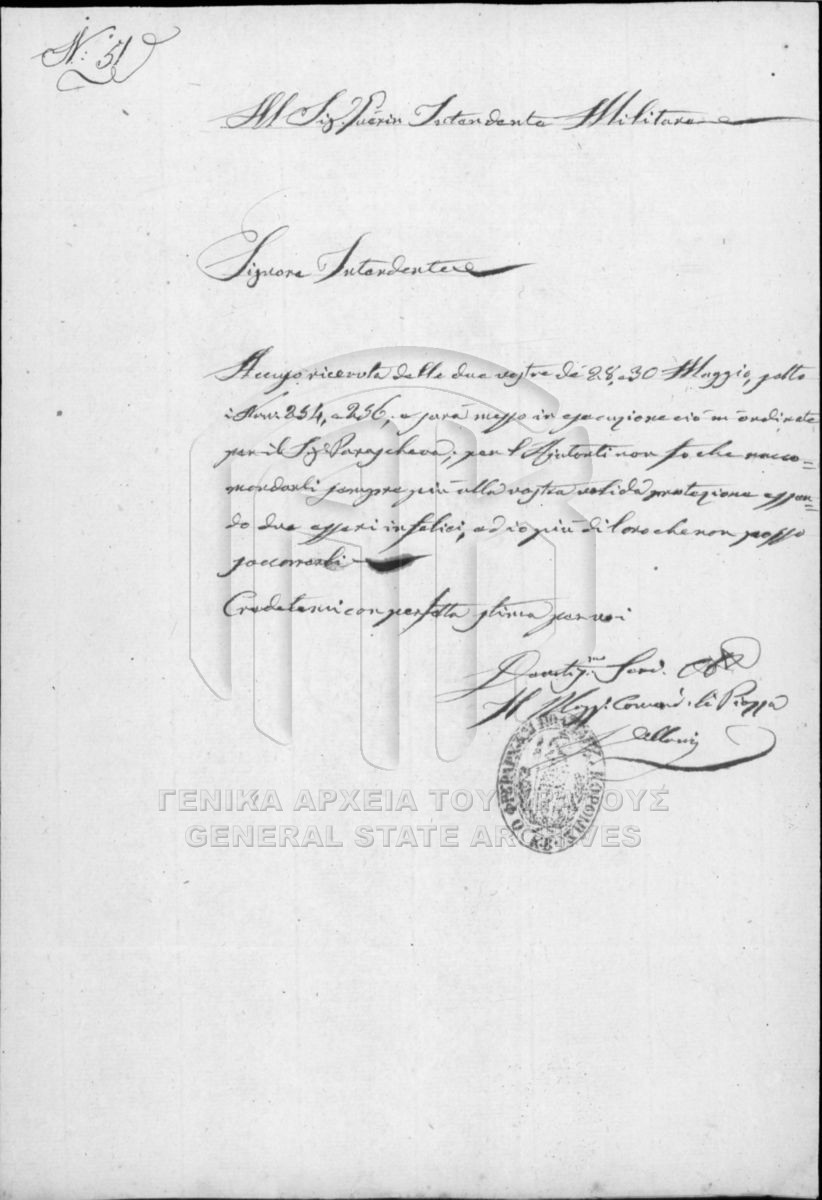 N.° 51
Al Sig. Guérin Intendente Militare
Signore Intendente
Accuso ricevuta delle due vostre de' 28, e 30 Maggio, sotto
i Nri. 254, e 256; e sarà messo in esecuzione ciò m'ordinate
per il Sig. Parascheva; per l' Ajutanti non fo che racco=
mandarli sempre più alla vostra valida protezione essen=
do due esseri infelici, ed io più di loro che non posso
soccorrerli
Credetemi con perfetta stima per voi
Il Magg. Comand. di Piazza
ΓΕΝΙΚΑ ΑΡΧΕΙΑ ΤΟΥ ΚΡΑΤΟΥΣ
GENERAL STATE ARCHIVES